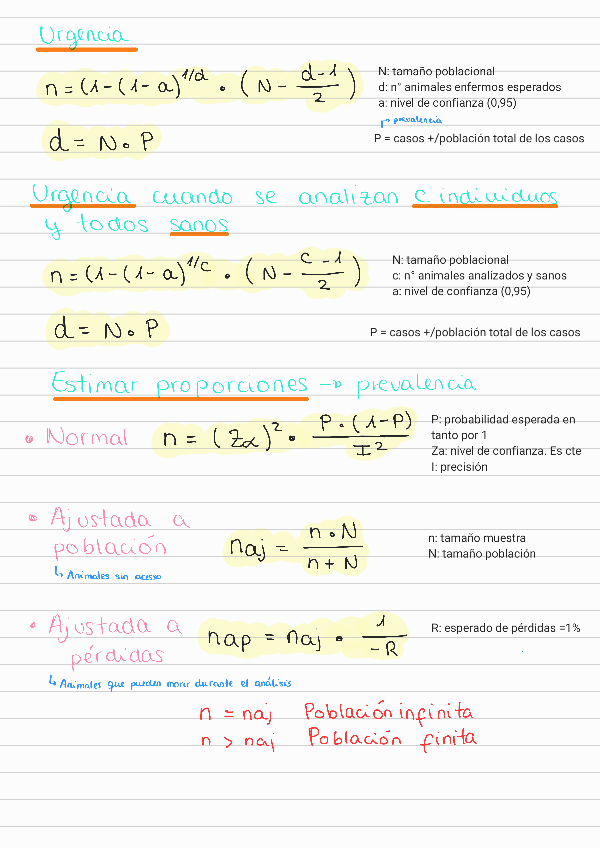 Urgencia
n = (1-(1-a)^1/d • (N - d-1/2)
N: tamaño poblacional
d: n° animales enfermos esperados
a: nivel de confianza (0,95)
↱ prevalencia
d = N • P
P = casos +/población total de los casos
Urgencia cuando se analizan c individuos
y todos sanos
n = (1-(1-a)^1/c • (N - c-1/2)
N: tamaño poblacional
c: n° animales analizados y sanos
a: nivel de confianza (0,95)
d = N • P
P = casos +/población total de los casos
Estimar proporciones → prevalencia
• Normal n = (Zα)² • P • (1-P)/I²
P: probabilidad esperada en
tanto por 1
Za: nivel de confianza. Es cte
I: precisión
• Ajustada a
población
naj = n • N/n + N
n: tamaño muestra
N: tamaño población
↳ Animales sin acceso
• Ajustada a
pérdidas
nap = naj • 1/-R
R: esperado de pérdidas =1%
↳ Animales que pueden morir durante el análisis
n = naj Población infinita
n > naj Población finita